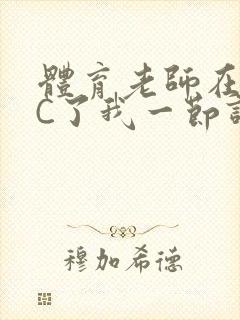 體育老師在
C了我一節
穆加希德